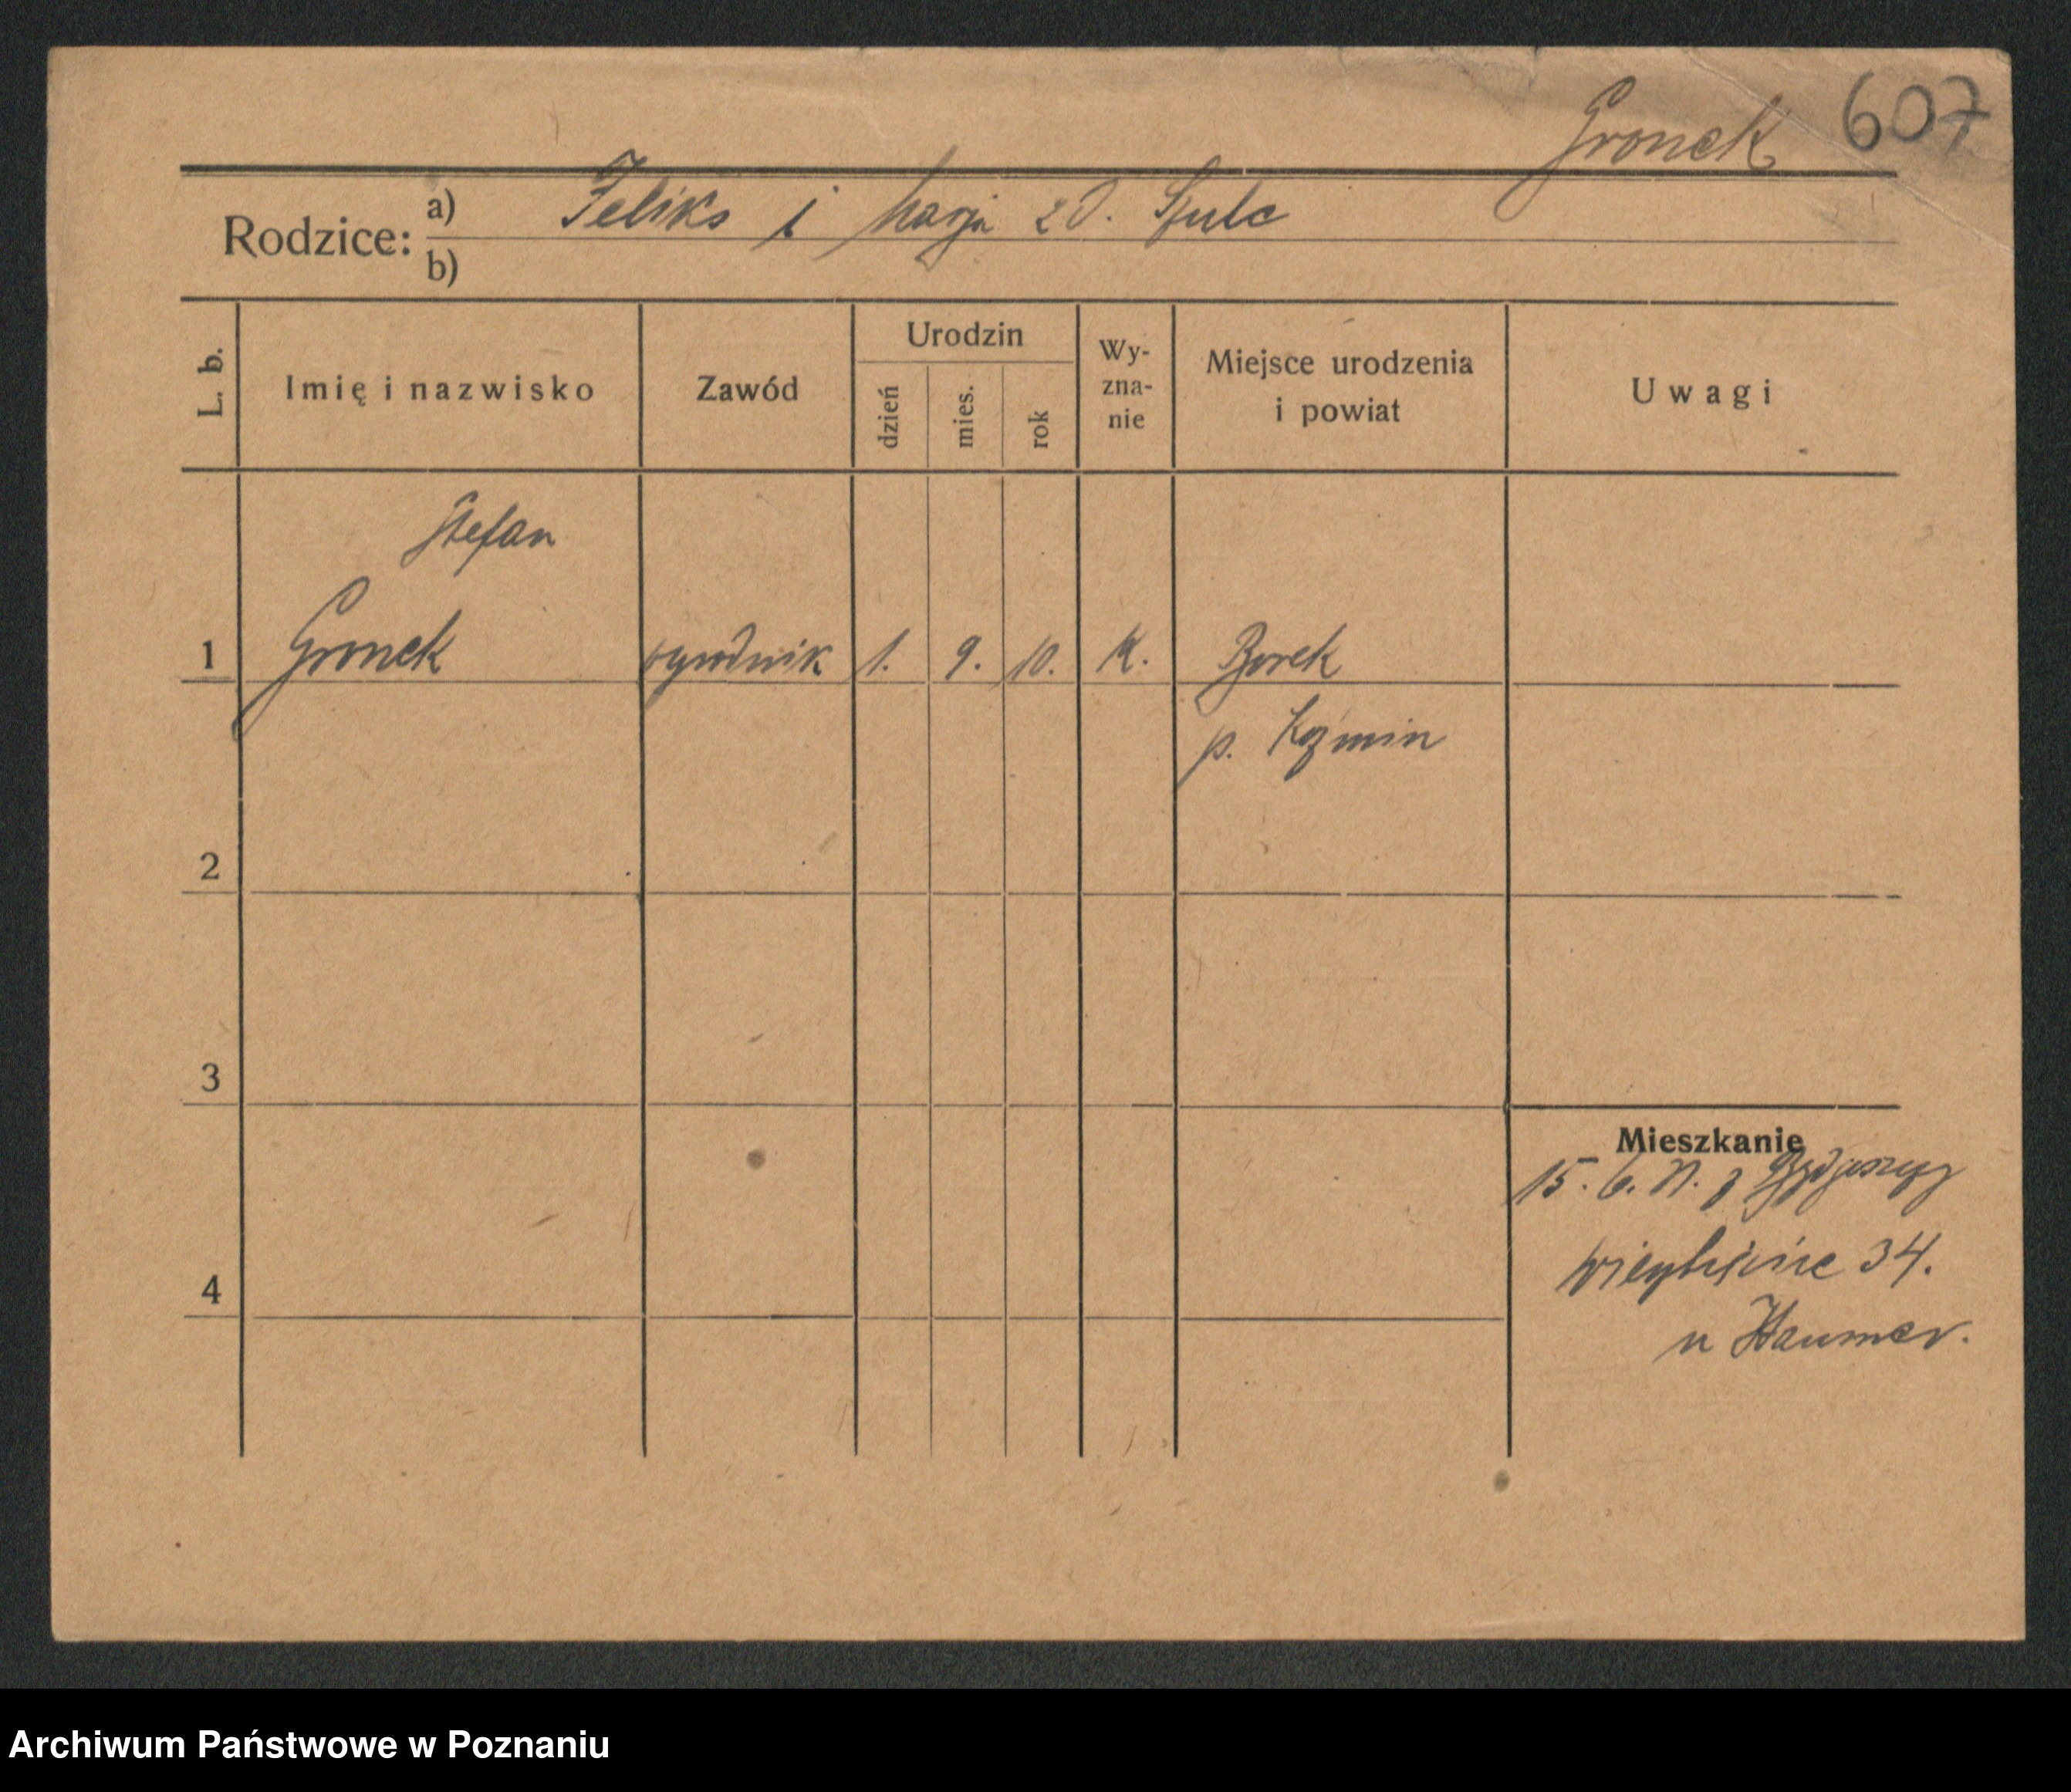 Gronek 607
Rodzice: a) Feliks i Marja z d. Szulc
b)
L. b. Imię i nazwisko Zawód Urodzin dzień mies. rok Wy-zna-nie Miejsce urodzenia i powiat Uwagi
Stefan
1 Gronek ogrodnik 1. 9. 10. K. Borek
p. Koźmin
2
3
Mieszkanie
15. 6. z Bydgoszczy
4
34.
u
Archiwum Państwowe w Poznaniu